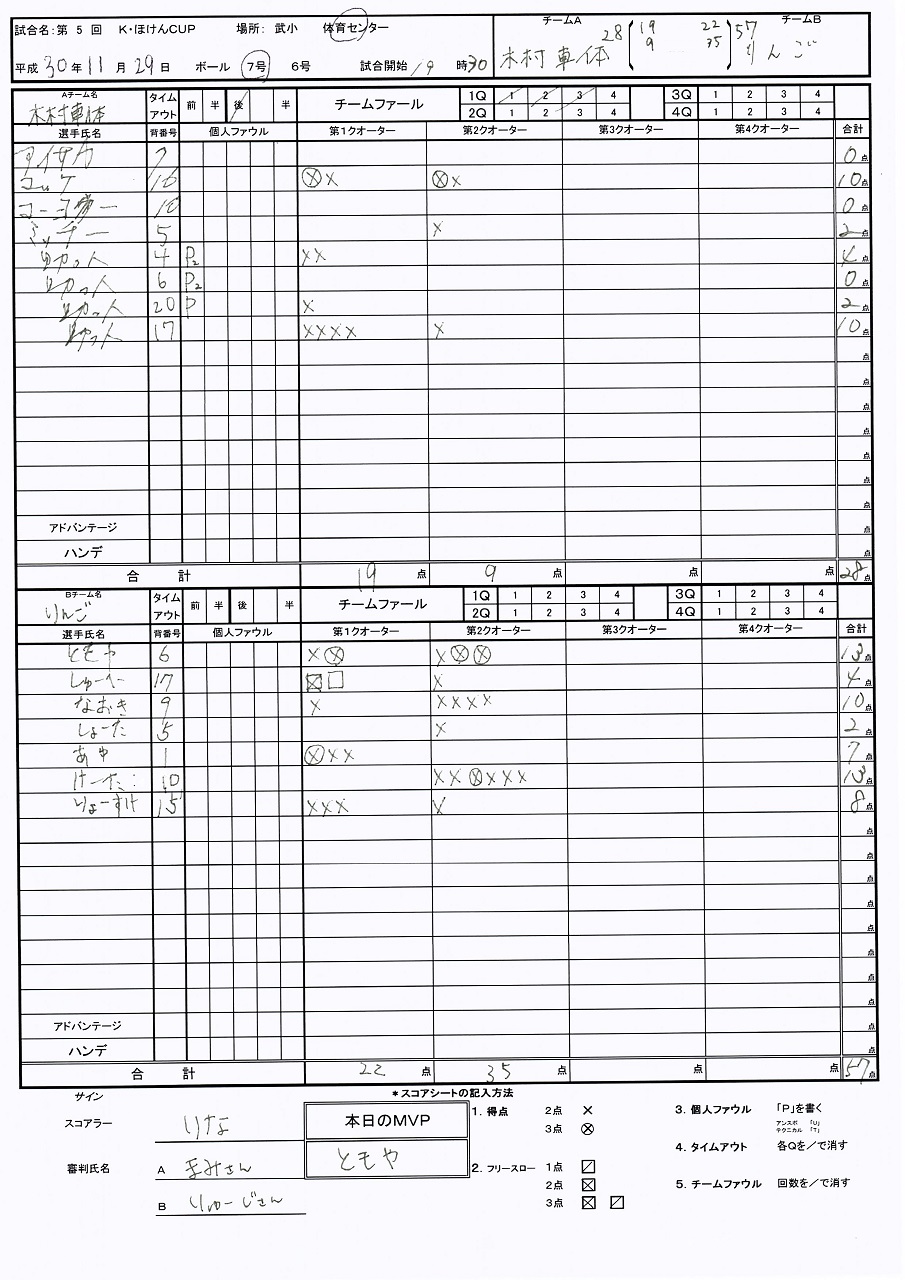 試合名：第 5 回 K・ほけんCUP 場所： 武小 体育センター
平成 30 年 11 月 29 日 ボール 7号 6号 試合開始 19 時 30
チームA 28 19 22 57 チームB
木村車体 9 35 りんご
Aチーム名 木村車体 タイムアウト 前 半 後 半 チームファール 1Q 1 2 3 4 3Q 1 2 3 4
2Q 1 2 3 4 4Q 1 2 3 4
選手氏名 背番号 個人ファウル 第1クオーター 第2クオーター 第3クオーター 第4クオーター 合計
アイサカ 7 0点
コッケ 16 ⊗× ⊗× 10点
10 0点
ミッチー 5 × 2点
助っ人 4 P2 ×× 4点
助っ人 6 P2 0点
助っ人 20 P × 2点
助っ人 17 ×××× × 10点
点
点
点
点
点
点
点
アドバンテージ 点
ハンデ 点
合 計 19 点 9 点 点 点 28点
Bチーム名 りんご タイムアウト 前 半 後 半 チームファール 1Q 1 2 3 4 3Q 1 2 3 4
2Q 1 2 3 4 4Q 1 2 3 4
選手氏名 背番号 個人ファウル 第1クオーター 第2クオーター 第3クオーター 第4クオーター 合計
ともや 6 ×⊗ ×⊗⊗ 13点
しゅーへー 17 ☒□ × 4点
なおき 9 × ×××× 10点
しょーた 5 × 2点
あや 1 ⊗×× 7点
けーた 10 ××⊗××× 13点
りょーすけ 15 ××× × 8点
点
点
点
点
点
点
点
点
アドバンテージ 点
ハンデ 点
合 計 22 点 35 点 点 点 57点
サイン
スコアラー りな
審判氏名 A まみさん
B りゅーじさん
本日のMVP
ともや
＊スコアシートの記入方法
1. 得点 2点 ×
3点 ⊗
2. フリースロー 1点 ⍁
2点 ☒
3点 ☒ ⍁
3. 個人ファウル 「P」を書く
アンスポ 「U」
テクニカル 「T」
4. タイムアウト 各Qを/で消す
5. チームファウル 回数を/で消す